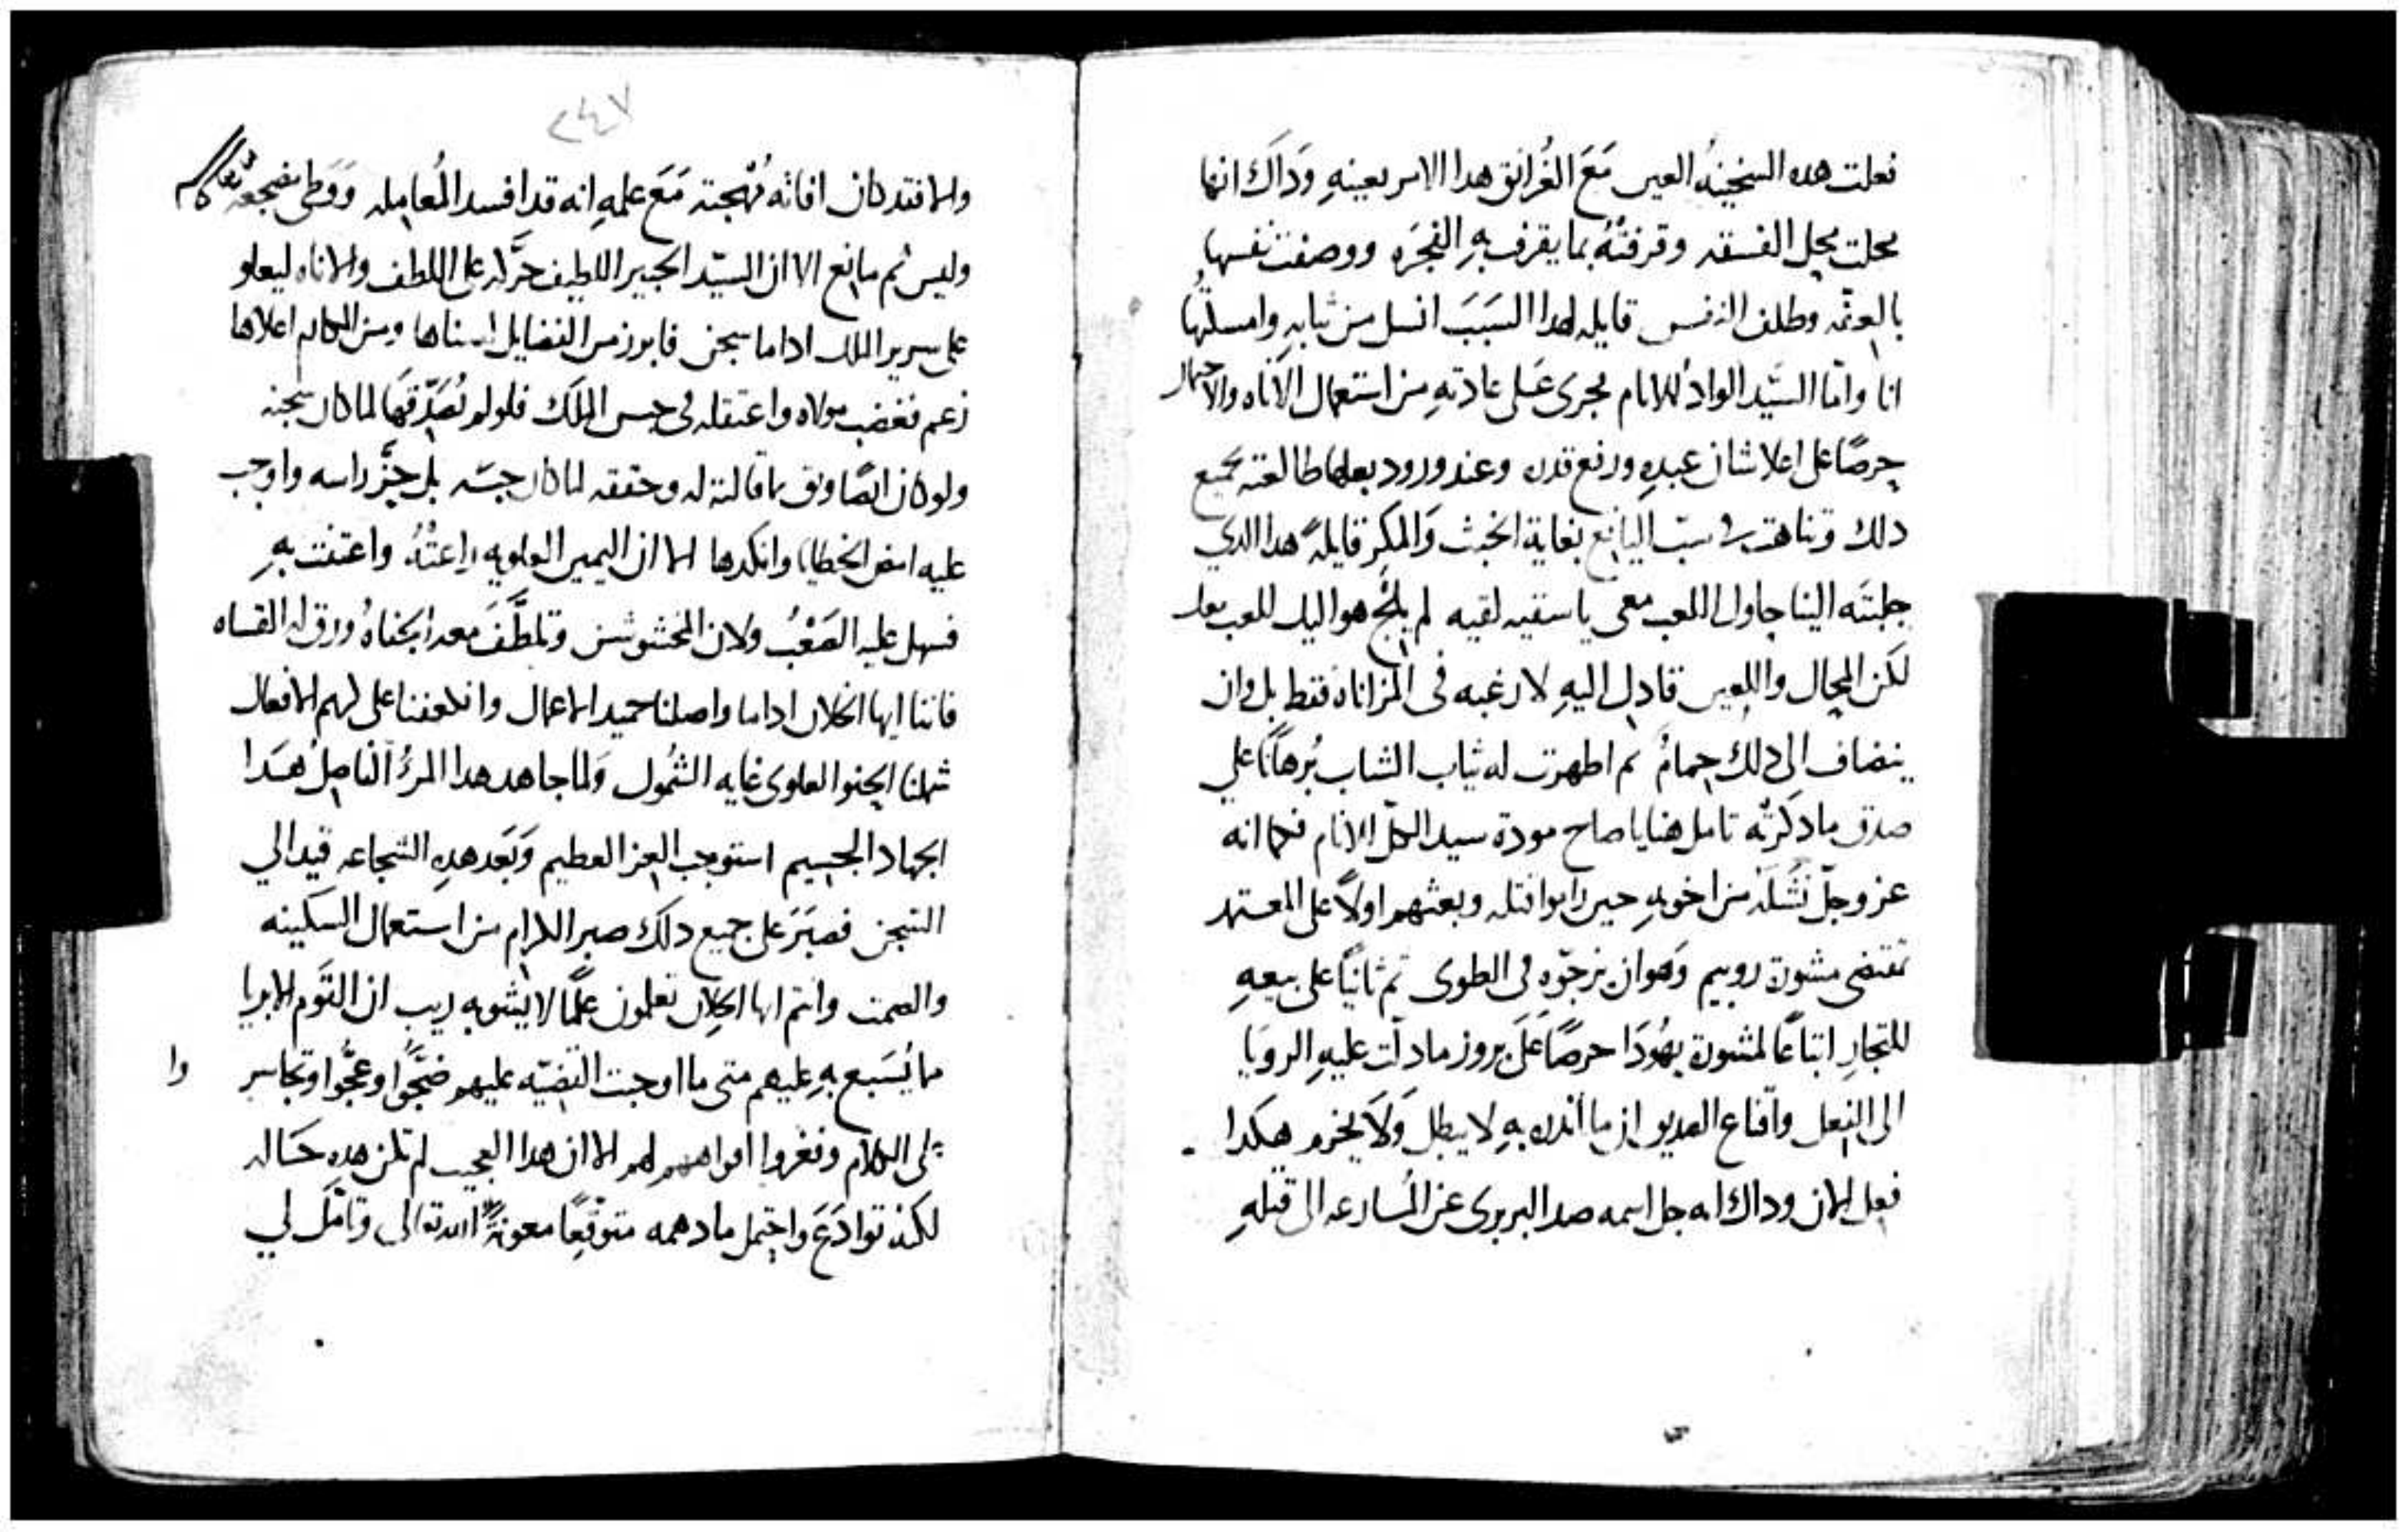 فعلت هده السخينة العين مَعَ الغُرانق هدا الامر بعينهِ وَدَاكَ انها
محلت محل الفسقه وقرفتهُ بما يقرف بهِ الفجَره ووصفت نفسها
بالعفّه وطلف النفس قايله لهدا السَبَب انسل من ثيابهِ وامسلتُها
انا وامّا السَّيّد الوادُ للانام فجرى عَلى عادتهِ من استعمال الاناه والاحتمال
حرصًا على اعلا شان عبدهِ ورفع قدره وعند ورود بعلها طالعته بجميع
دلك وتناهت في سبّ اليافع بغاية الخبث وَالمكر قايلةً هدا الدي
جلبتَه الينا حاول اللعب معي يا سفيه لم هو اليك للعب بعا
لكن المحال واللعين قادل اليهِ لا رغبه في المزاناه فقط بل وان
ينضاف الى دلك حِمامُ ثم اظهرت له ثياب الشاب بُرهانًا علي
صدق ما دكرتْه تامل هنا يا صاح مودة سيد الكل للانام فكما انه
عز وجلّ نَشَلَه من اخوتهِ حين راموا قتله وبعثهم اولاً على
تقتضي مشورة روبيم وَهو ان يزجّوه في الطوى ثم ثانيًا على بيعهِ
للتجارِ اتباعًا لمشورة يهُودَا حرصًا عَلَى بروز ما دلّت عليهِ الرويَا
الى الفعل واقناع العديو ان ما اندره بهِ لا يبطل وَلَا يخرم هكدا
فعل الان وداك انه جل اسمه صد البربري عن المُسارعه الى قتلهِ
٢٤٧
والا فقد كان افاته مُهجته مَعَ علمهِ انه قد افسد المُعامله وَوَطى مضجعه
وليس ثم مانع الا ان السيّد الخبير اللطيف حرَّكه على اللطف والاناه ليعلو
على سرير الملك اداما سجن فابوز من الفضايل اسناها ومن المكارم اعلاها
زعم فغضب مولاه واعتقله في حبس الملَك فلو لم يُصَدّقها لما كان سجنه
ولو كان ايضًا وثق بما قالته له وحققه لما كان حبسَه بل حزَّ راسه واوجب
عليه امض الخطايا وانكدها الا ان اليمين العلويه راعتْهُ واعتنت بهِ
فسهل عليه الصَعْبُ ولان المخشوشن وتلطَّفَ معه الجفاهُ ورق له القساه
فاننا ايها الخلان اداما واصلنا حميد الاعمال وانعطفنا على لهم الافعال
شملنا الحنو العلوى غايه الشمُول وَلما جاهد هدا المرءُ الفاضلُ هَدا
الجهاد الجسيم استوجب العز العظيم وَبَعد هدهِ الشجاعه قيد الي
السجن فصبَرَ على جميع دلك صبر الكرام من استعمال السكينه
والصمت وانتم ايها الخِلان تعلمون عِلمًا لا يشوبه ريب ان القَوم الابريا
مما يُسَبع بهِ عليهم متى ما اوجبت القضيّه عليهم ضجُّوا وعجُّوا وتجاسر وا
على الكلام وفغروا افواههم لهم الا ان هدا العجيب لم تكن هدهِ حَاله
لكنه توادَعَ واحتمل ما دهمه متوقّعًا معونةً الله تعالى وتامّل لي